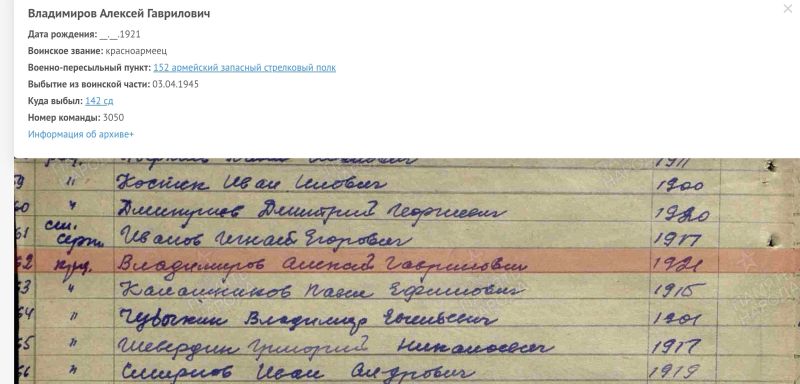 Владимиров Алексей Гаврилович
Дата рождения: __.__.1921
Воинское звание: красноармеец
Военно-пересыльный пункт: 152 армейский запасный стрелковый полк
Выбытие из воинской части: 03.04.1945
Куда выбыл: 142 сд
Номер команды: 3050
Информация об архиве+
1911
59 " Костин Иван 1900
60 " Дмитрий Георгиевич 1920
61 ст. сержт. Иванов Игнат Егорович 1917
62 крц. Владимиров Алексей Гаврилович 1921
63 " Калашников Павел Ефимович 1915
64 " Владимир 1901
65 " Шевердин Григорий Николаевич 1917
66 " Смирнов Иван Андрович 1919